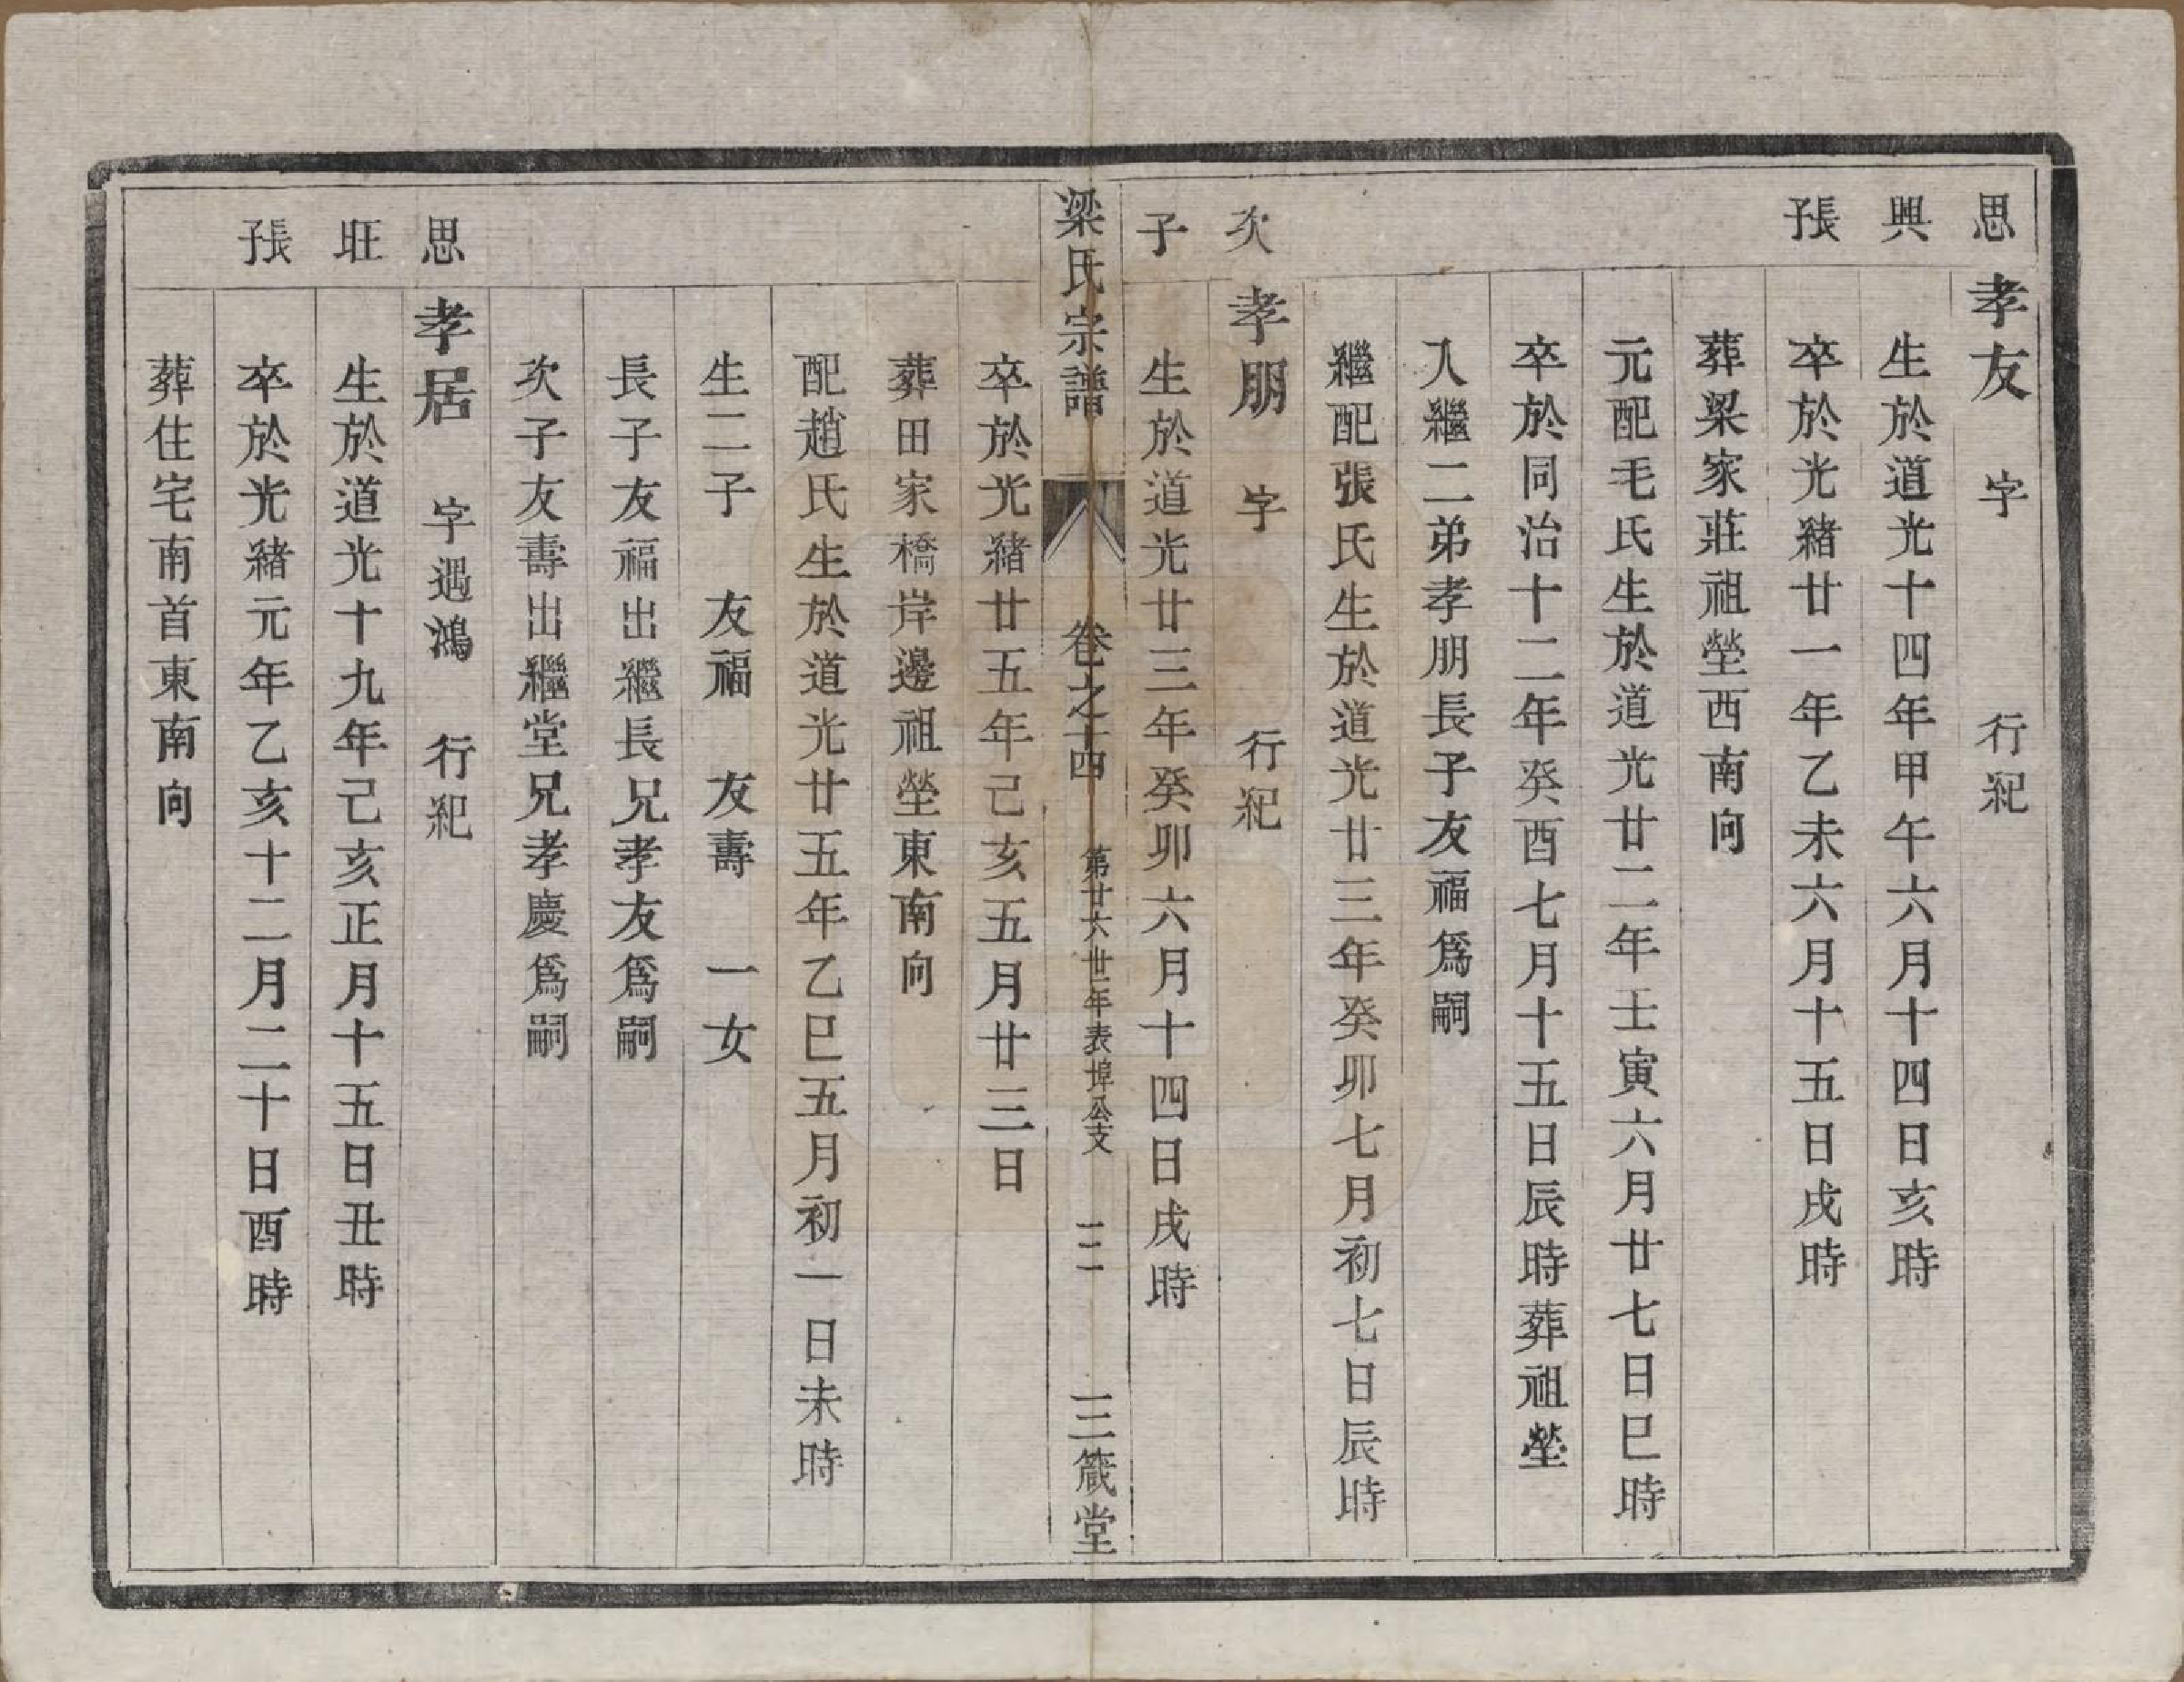 思 孝友 字 行紀
興 生於道光十四年甲午六月十四日亥時
張 卒於光緒廿一年乙未六月十五日戌時
葬梁家莊祖塋西南向
元配毛氏生於道光廿二年壬寅六月廿七日巳時
卒於同治十二年癸酉七月十五日辰時葬祖塋
入繼二弟孝朋長子友福爲嗣
繼配張氏生於道光廿三年癸卯七月初七日辰時
次 孝朋 字 行紀
子 生於道光廿三年癸卯六月十四日戌時
梁氏宗譜 卷之十四 第廿六世年表埠公支 二二 三箴堂
卒於光緒廿五年己亥五月廿三日
葬田家橋岸邊祖塋東南向
配趙氏生於道光廿五年乙巳五月初一日未時
生二子 友福 友壽 一女
長子友福出繼長兄孝友爲嗣
次子友壽出繼堂兄孝慶爲嗣
思 孝居 字遇鴻 行紀
旺 生於道光十九年己亥正月十五日丑時
張子 卒於光緒元年乙亥十二月二十日酉時
葬住宅南首東南向